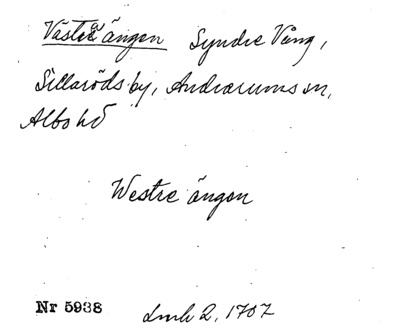 Västra ängen Syndre Vång,
Sillaröds by, Andrarums sn,
Albo hd
Westre ängen
Nr 5938 Lmh 2, 1707